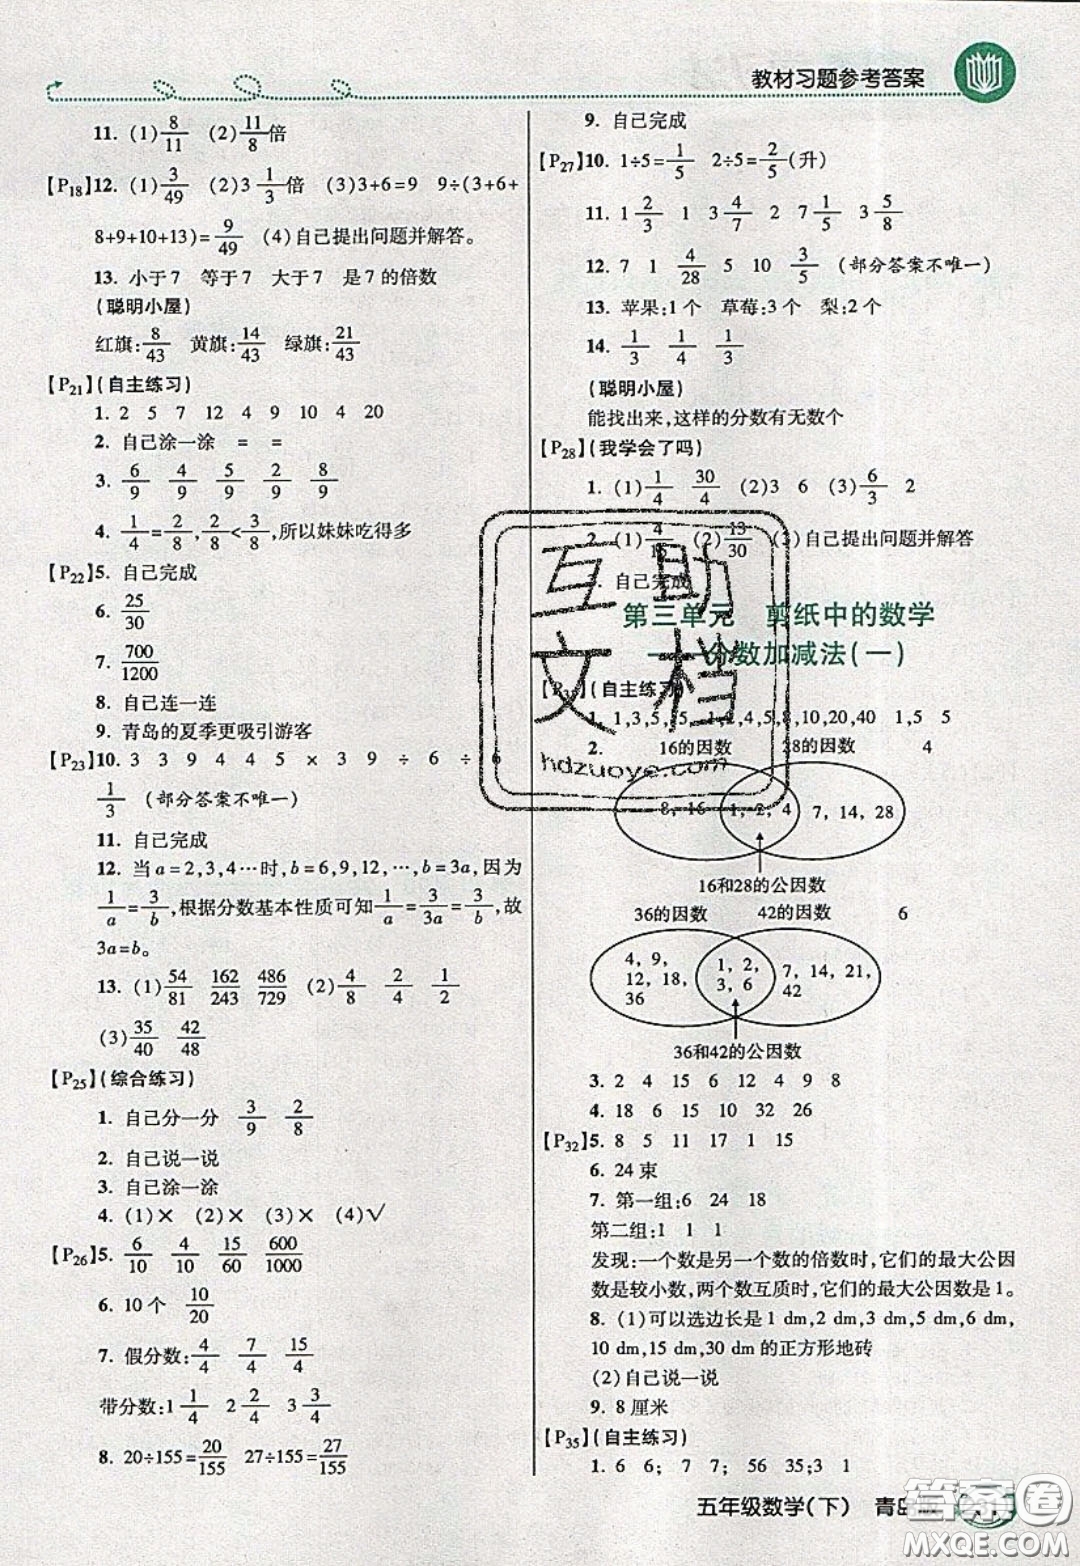 教材习题参考答案
11. (1)8/11 (2)11/8倍
【P18】12. (1)3/49 (2)3 1/3倍 (3)3+6=9 9÷(3+6+
8+9+10+13)=9/49 (4)自己提出问题并解答。
13. 小于7 等于7 大于7 是7的倍数
(聪明小屋)
红旗:8/43 黄旗:14/43 绿旗:21/43
【P21】(自主练习)
1. 2 5 7 12 4 9 10 4 20
2. 自己涂一涂 = =
3. 6/9 4/9 5/9 2/9 8/9
4. 1/4=2/8,2/8<3/8,所以妹妹吃得多
【P22】5. 自己完成
6. 25/30
7. 700/1200
8. 自己连一连
9. 青岛的夏季更吸引游客
【P23】10. 3 3 9 4 4 5 × 3 9 ÷ 6 ÷ 6
1/3 (部分答案不唯一)
11. 自己完成
12. 当a=2,3,4…时,b=6,9,12,…,b=3a,因为
1/a=3/b,根据分数基本性质可知1/a=3/3a=3/b,故
3a=b。
13. (1)54/81 162/243 486/729 (2)4/8 2/4 1/2
(3)35/40 42/48
【P25】(综合练习)
1. 自己分一分 3/9 2/8
2. 自己说一说
3. 自己涂一涂
4. (1)× (2)× (3)× (4)√
【P26】5. 6/10 4/10 15/60 600/1000
6. 10个 10/20
7. 假分数:4/4 7/4 15/4
带分数:1 1/4 2 2/4 3 3/4
8. 20÷155=20/155 27÷155=27/155
9. 自己完成
【P27】10. 1÷5=1/5 2÷5=2/5(升)
11. 1 2/3 1 3 4/7 2 7 1/5 3 5/8
12. 7 1 4/28 5 10 3/5 (部分答案不唯一)
13. 苹果:1个 草莓:3个 梨:2个
14. 1/3 1/4 1/3
(聪明小屋)
能找出来,这样的分数有无数个
【P28】(我学会了吗)
1. (1)1/4 30/4 (2)3 6 (3)6/3 2
2. (1)4/15 (2)13/30 (3)自己提出问题并解答
自己完成
第三单元 剪纸中的数学
分数加减法(一)
(自主练习)
1. 1,3,5,15 1,2,4,5,8,10,20,40 1,5 5
2. 16的因数 28的因数 4
8, 16 1, 2, 4 7, 14, 28
16和28的公因数
36的因数 42的因数 6
4, 9, 12, 18, 36 1, 2, 3, 6 7, 14, 21, 42
36和42的公因数
3. 2 4 15 6 12 4 9 8
4. 18 6 15 10 32 26
【P32】5. 8 5 11 17 1 15
6. 24束
7. 第一组:6 24 18
第二组:1 1 1
发现:一个数是另一个数的倍数时,它们的最大公因
数是较小数,两个数互质时,它们的最大公因数是1。
8. (1)可以选边长是1 dm,2 dm,3 dm,5 dm,6 dm,
10 dm,15 dm,30 dm的正方形地砖
(2)自己说一说
9. 8厘米
【P35】(自主练习)
1. 6 6; 7 7; 56 35;3 1
五年级数学(下) 青
互助文档
hdzuoye.com
答案圈
MXQE.COM